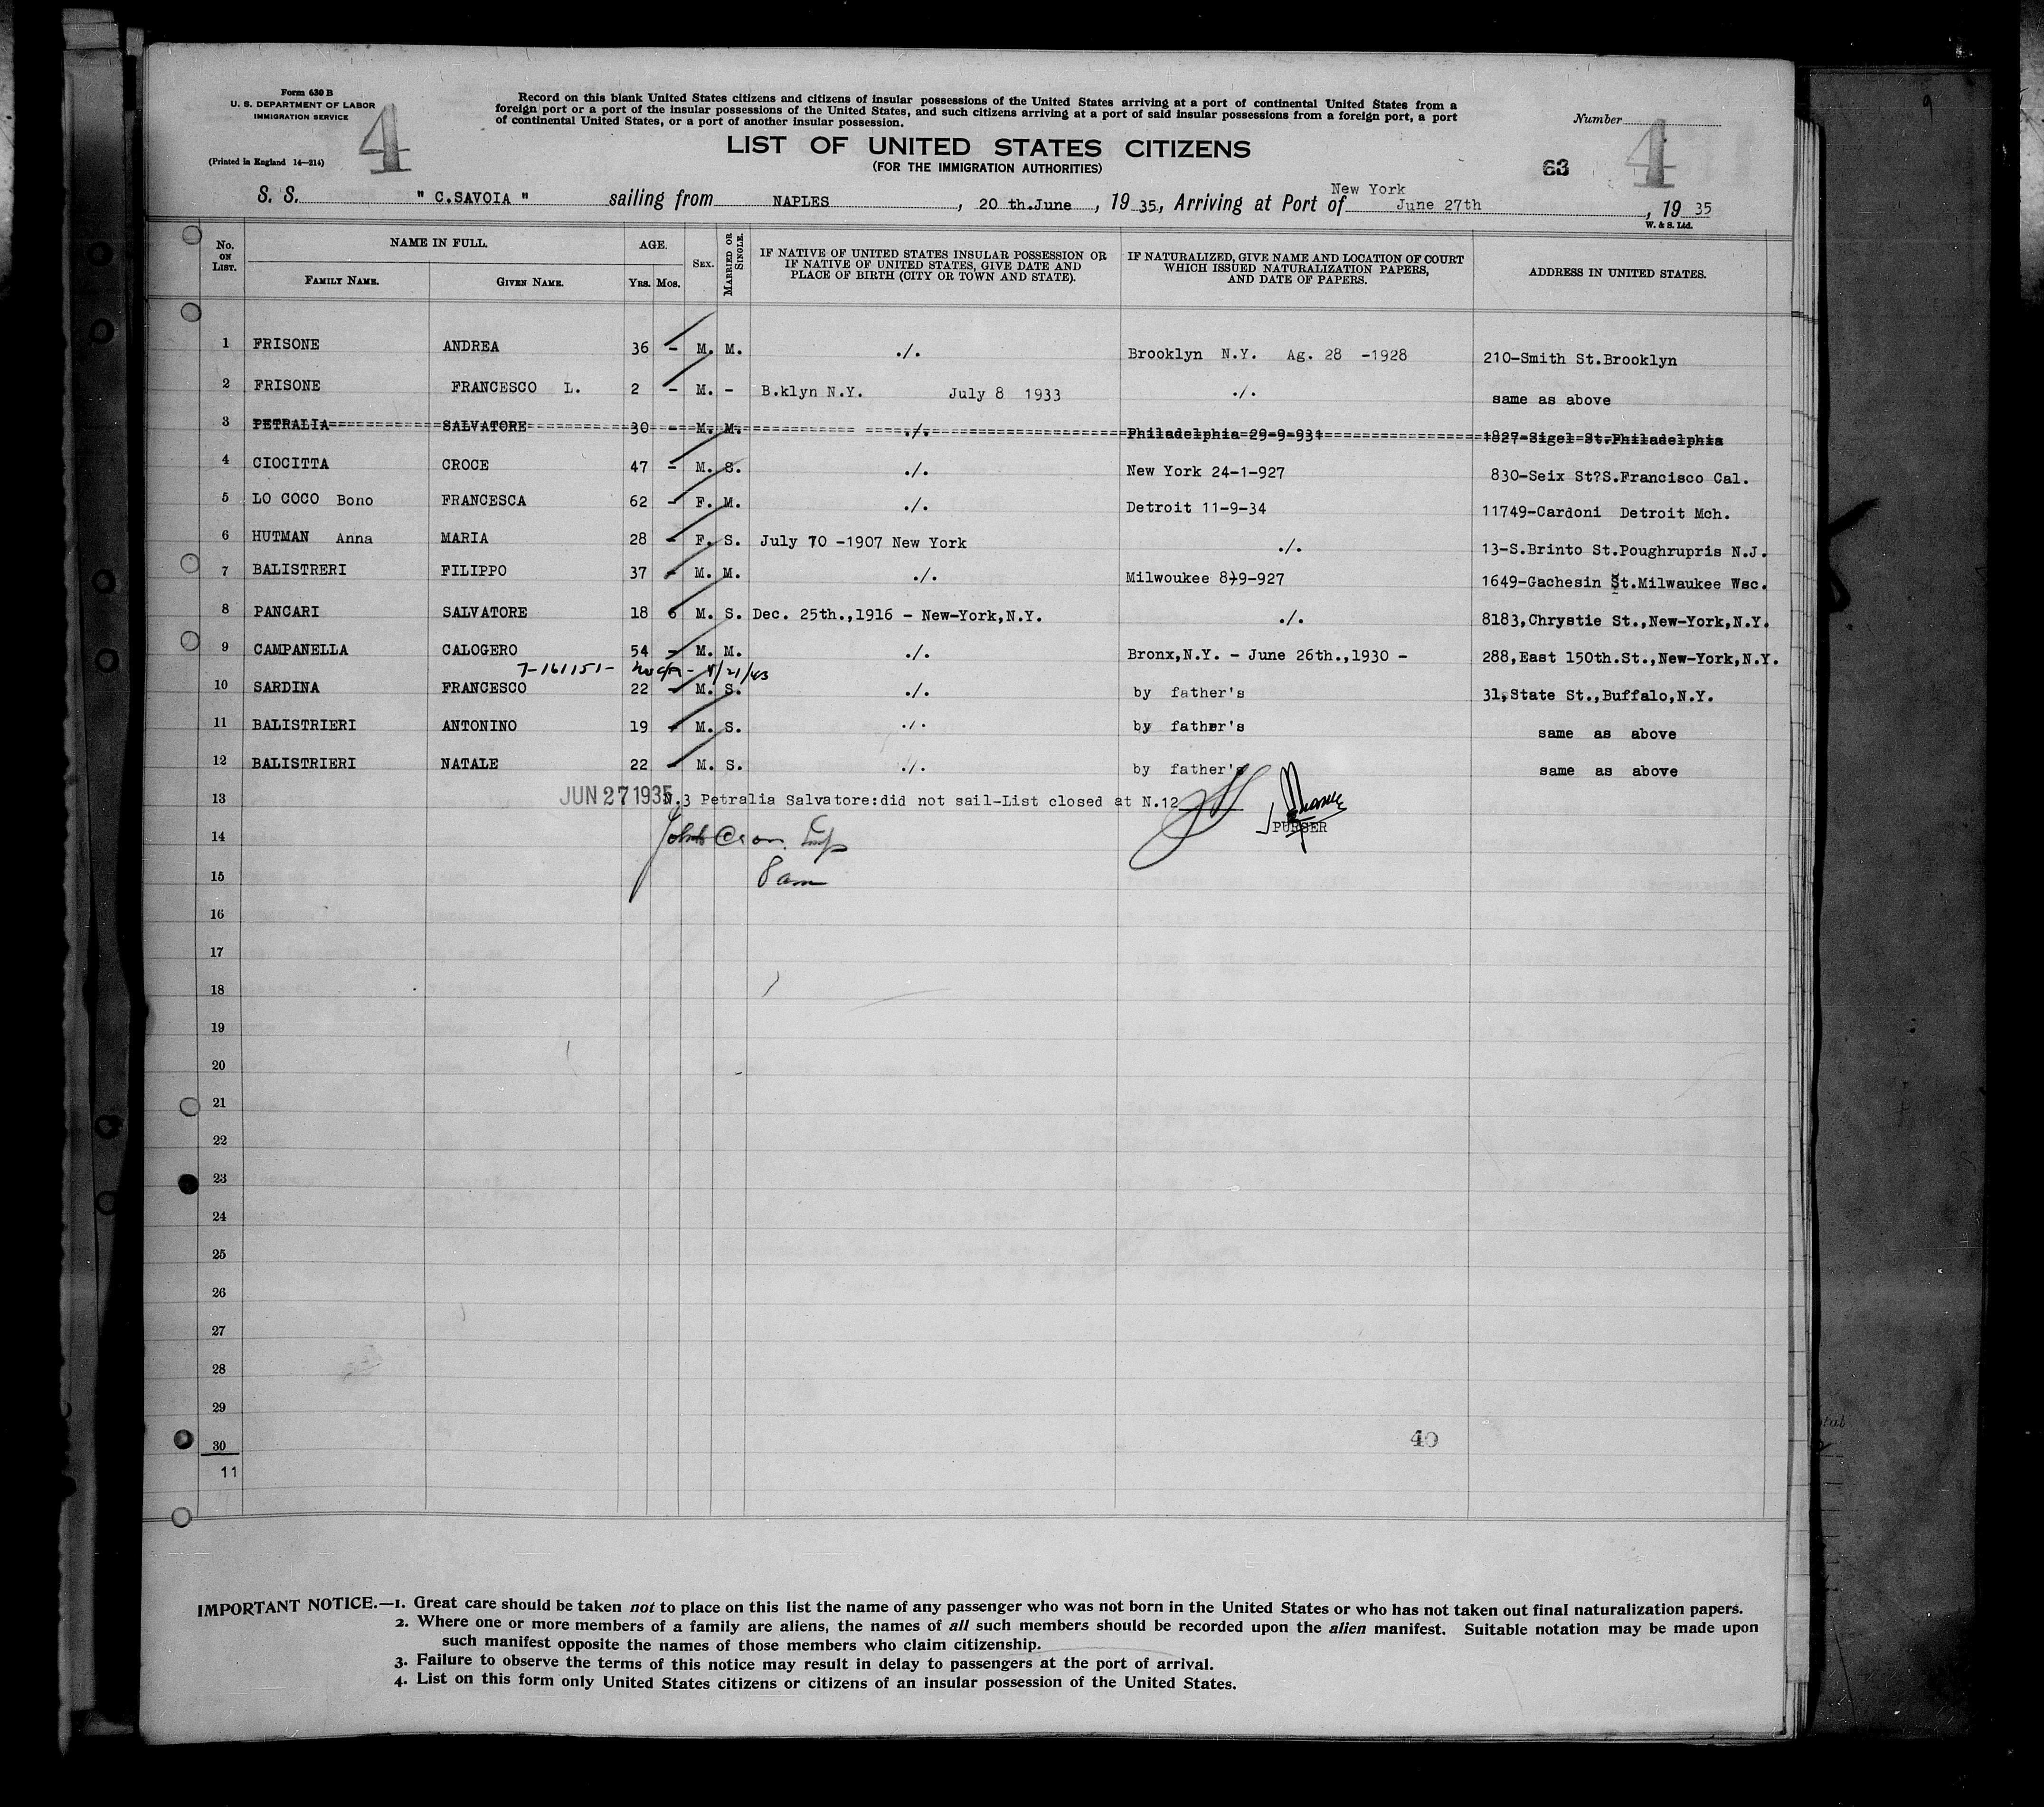 Form 630 B
U. S. DEPARTMENT OF LABOR
IMMIGRATION SERVICE
4
(Printed in England 14—214)
Record on this blank United States citizens and citizens of insular possessions of the United States arriving at a port of continental United States from a
foreign port or a part of the insular possessions of the United States, and such citizens arriving at a port of said insular possessions from a foreign port, a port
of continental United States, or a port of another insular possession.
LIST OF UNITED STATES CITIZENS
(FOR THE IMMIGRATION AUTHORITIES)
Number
63
4
S. S. " C.SAVOIA " sailing from NAPLES , 20 th.June , 19 35, Arriving at Port of New York June 27th , 19 35
W. & S. Ltd.
No. ON LIST. NAME IN FULL. AGE. SEX. MARRIED OR SINGLE. IF NATIVE OF UNITED STATES INSULAR POSSESSION OR IF NATIVE OF UNITED STATES, GIVE DATE AND PLACE OF BIRTH (CITY OR TOWN AND STATE). IF NATURALIZED, GIVE NAME AND LOCATION OF COURT WHICH ISSUED NATURALIZATION PAPERS, AND DATE OF PAPERS. ADDRESS IN UNITED STATES.
FAMILY NAME. GIVEN NAME. YRS. MOS.
1 FRISONE ANDREA 36 - M. M. ./. Brooklyn N.Y. Ag. 28 -1928 210-Smith St.Brooklyn
2 FRISONE FRANCESCO L. 2 - M. - B.klyn N.Y. July 8 1933 ./. same as above
3 PETRALIA SALVATORE 30 - M. M. ./. Philadelphia 29-9-931 1827-Sigel St.Philadelphia
4 CIOCITTA CROCE 47 - M. S. ./. New York 24-1-927 830-Seix St?S.Francisco Cal.
5 LO COCO Bono FRANCESCA 62 - F. M. ./. Detroit 11-9-34 11749-Cardoni Detroit Mch.
6 HUTMAN Anna MARIA 28 - F. S. July 10 -1907 New York ./. 13-S.Brinto St.Poughrupris N.J.
7 BALISTRERI FILIPPO 37 - M. M. ./. Milwoukee 8-9-927 1649-Gachesin St.Milwaukee Wsc.
8 PANCARI SALVATORE 18 6 M. S. Dec. 25th.,1916 - New-York,N.Y. ./. 8183,Chrystie St.,New-York,N.Y.
9 CAMPANELLA CALOGERO 54 - M. M. ./. Bronx,N.Y. - June 26th.,1930 - 288,East 150th.St.,New-York,N.Y.
7-161151- 4/21/43
10 SARDINA FRANCESCO 22 - M. S. ./. by father's 31,State St.,Buffalo,N.Y.
11 BALISTRIERI ANTONINO 19 - M. S. ./. by father's same as above
12 BALISTRIERI NATALE 22 - M. S. ./. by father's same as above
13 JUN 27 1935 N.3 Petralia Salvatore:did not sail-List closed at N.12
PURSER
14
15 8 am
16
17
18
19
20
21
22
23
24
25
26
27
28
29
30 40
11
IMPORTANT NOTICE.—1. Great care should be taken not to place on this list the name of any passenger who was not born in the United States or who has not taken out final naturalization papers.
2. Where one or more members of a family are aliens, the names of all such members should be recorded upon the alien manifest. Suitable notation may be made upon
such manifest opposite the names of those members who claim citizenship.
3. Failure to observe the terms of this notice may result in delay to passengers at the port of arrival.
4. List on this form only United States citizens or citizens of an insular possession of the United States.